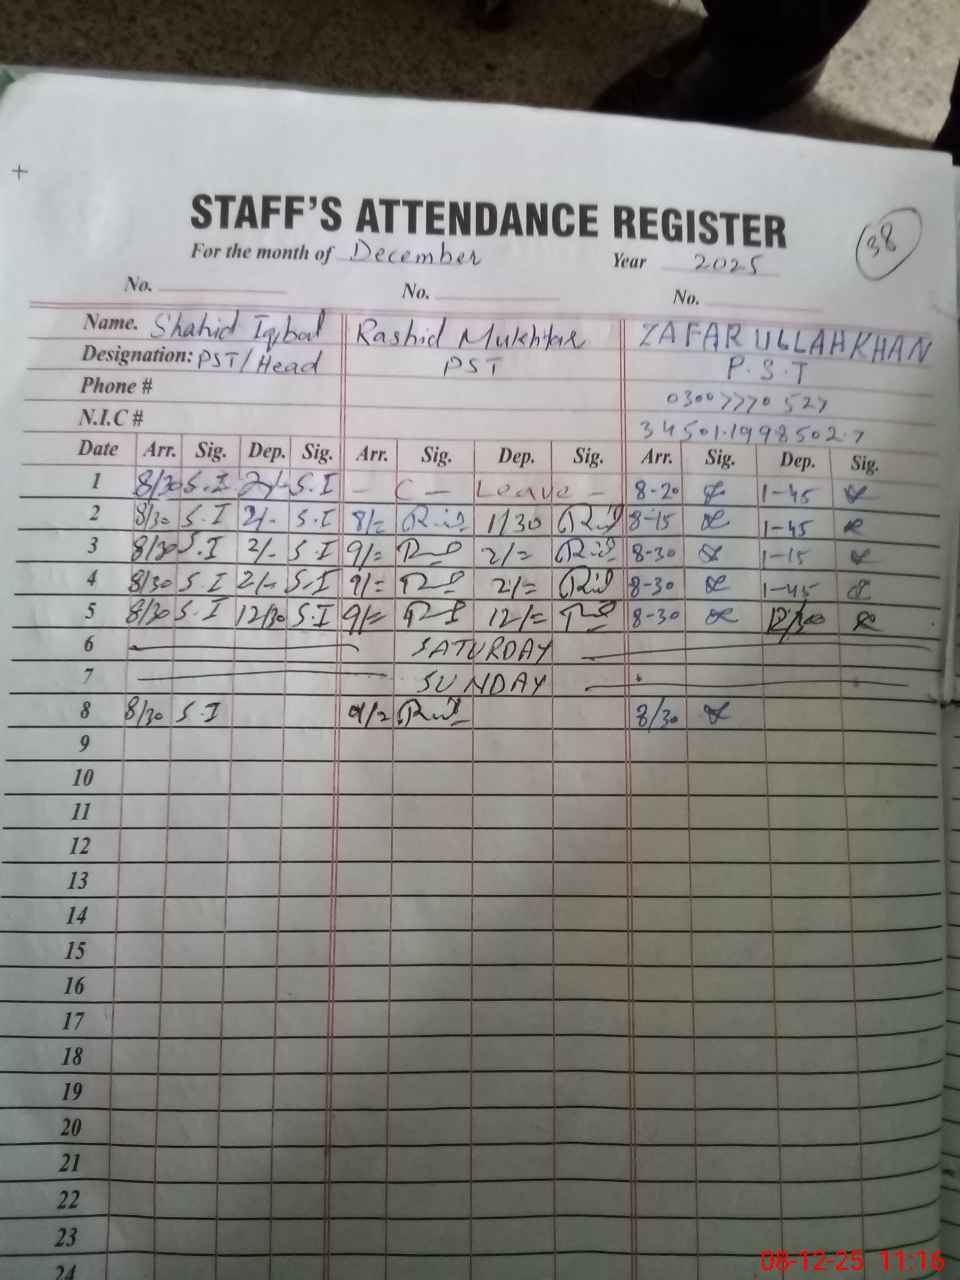 STAFF'S ATTENDANCE REGISTER
38
For the month of December Year 2025
No. No. No.
Name. Shahid Iqbal Rashid Mukhtar ZAFAR ULLAH KHAN
Designation: PST/Head PST P.S.T
Phone # 03007770527
N.I.C # 34501.1998502.7
Date Arr. Sig. Dep. Sig. Arr. Sig. Dep. Sig. Arr. Sig. Dep. Sig.
1 8/30 S.I 2/- S.I - C - Leave - 8-20 1-45
2 8/30 S.I 2/- S.I 8/= 1/30 8-15 1-45
3 8/30 S.I 2/- S.I 9/= 2/= 8-30 1-15
4 8/30 S.I 2/- S.I 9/= 2/= 8-30 1-45
5 8/30 S.I 12/30 S.I 9/= 12/= 8-30 12/30
6 SATURDAY
7 SUNDAY
8 8/30 S.I 8/30
9
10
11
12
13
14
15
16
17
18
19
20
21
22
23
24
08-12-25 11:16